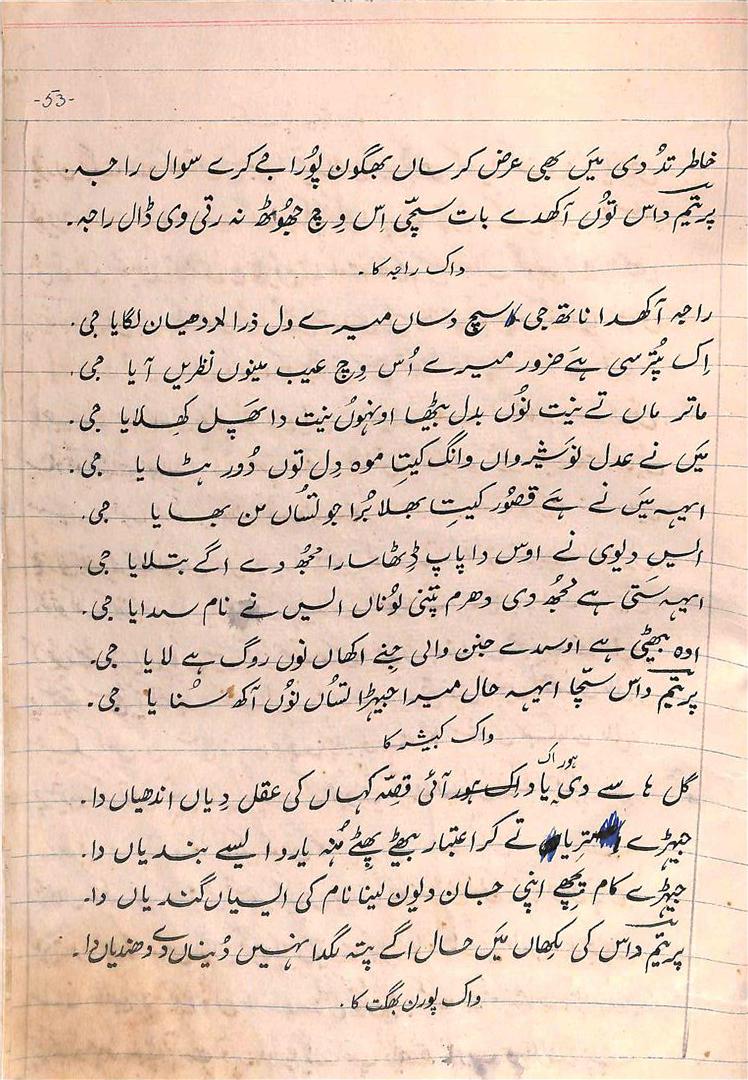 -53-
خاطر تدُ دی میَں بھی عرض کرساں بھگون پوُرا جے کرے سوال راجہ۔
پریتم داس توُں آکھدے بات سچّی اِس وِچ جھُوٹھ نہ رتی وی ڈال راجہ۔
واک راجہ کا۔
راجہ آکھدا ناتھ جی سچ دساں میرے دل ذرا لا دھیان لگایا جی۔
اِک پُتر سی ہےَ ضرور میرے اُس وِچ عیب مینوں نظریں آیا جی۔
ماتر ماں تے نیت نُوں بدل بیٹھا اونہوُں نیت دا پھَل کھِلایا جی۔
میَں نے عدل نوَشیرواں وانگ کیتا موہ دِل توں دُور ہٹایا جی۔
ایہہ میَں نے ہےَ قصُور کیتا بھلا بُرا جو تسُاں من بھایا جی۔
ایس دیوی نے اوس دا پاپ ڈِٹھا سارا مجھُ دے اگے بتلایا جی۔
ایہہ ستَی ہے مجھُ دی دھرم پتنی لوُناں ایس نے نام سدایا جی۔
اوہ بیٹھی ہے اوسدے جنن والی جِنے اکھاں نوں روگ ہے لایا جی۔
پریتم داس سچّا ایہہ حال میرا جیہڑا تسُاں نوُں آکھ سُنایا جی۔
واک کبیشر کا
گل ہاسے دی یاد ہور اک آئی قصّہ کہاں کی عقل دِیاں اندھیاں دا۔
جیہڑے تِریاں تے کر اعتبار بیٹھے پھِٹے مُنہ یارو ایسے بندیاں دا۔
جیہڑے کام پِچھے اپنی جان دیون لینا نام کی ایسیاں گندیاں دا۔
پریتم داس کی لِکھاں میَں حال اگے پتہ لگدا نہیں دُیناں دے دھندیاں دا۔
واک پورن بھگت کا۔